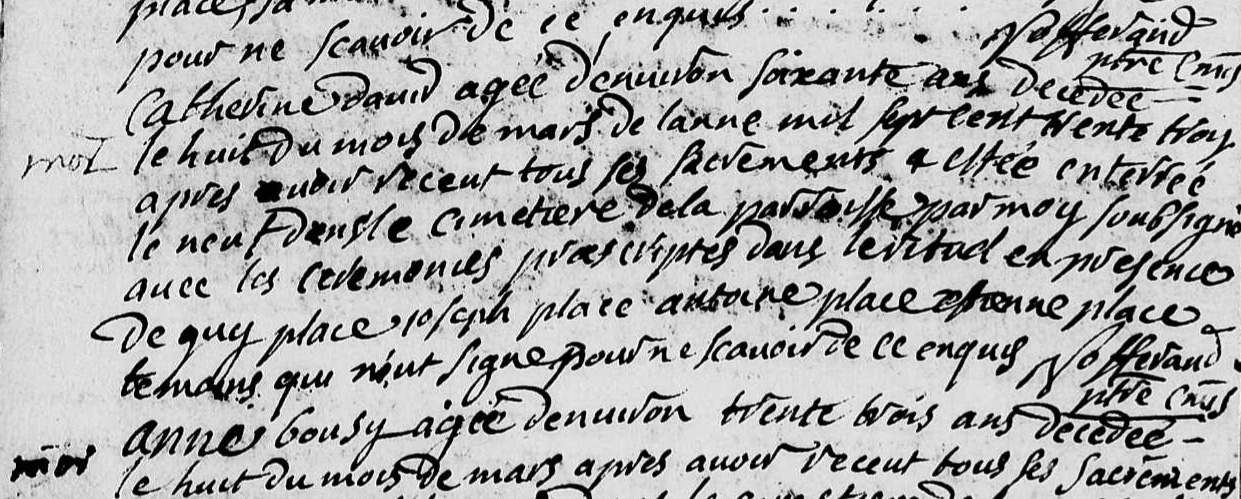 pour ne scauoir de ce enquis . . . . . .
catherine dauid agée denuiron soixante ans decedée
mor le huit du mois de mars de lanne mil sept cent trente trois
apres auoir receut tous ses sacrements & estée enterreé
le neuf dans le cimetiere dela parroisse par moy soubsigné
auec les ceremonies præscriptes dans le ritual en presence
de guy place ioseph place antoine place estienne place
temoins qui n'ont signe pour ne scauoir de ce enquis
ptre
anne bousy agée denuiron trente trois ans decedeé
mor le huit du mois de mars apres auoir receut tous ses sacrements